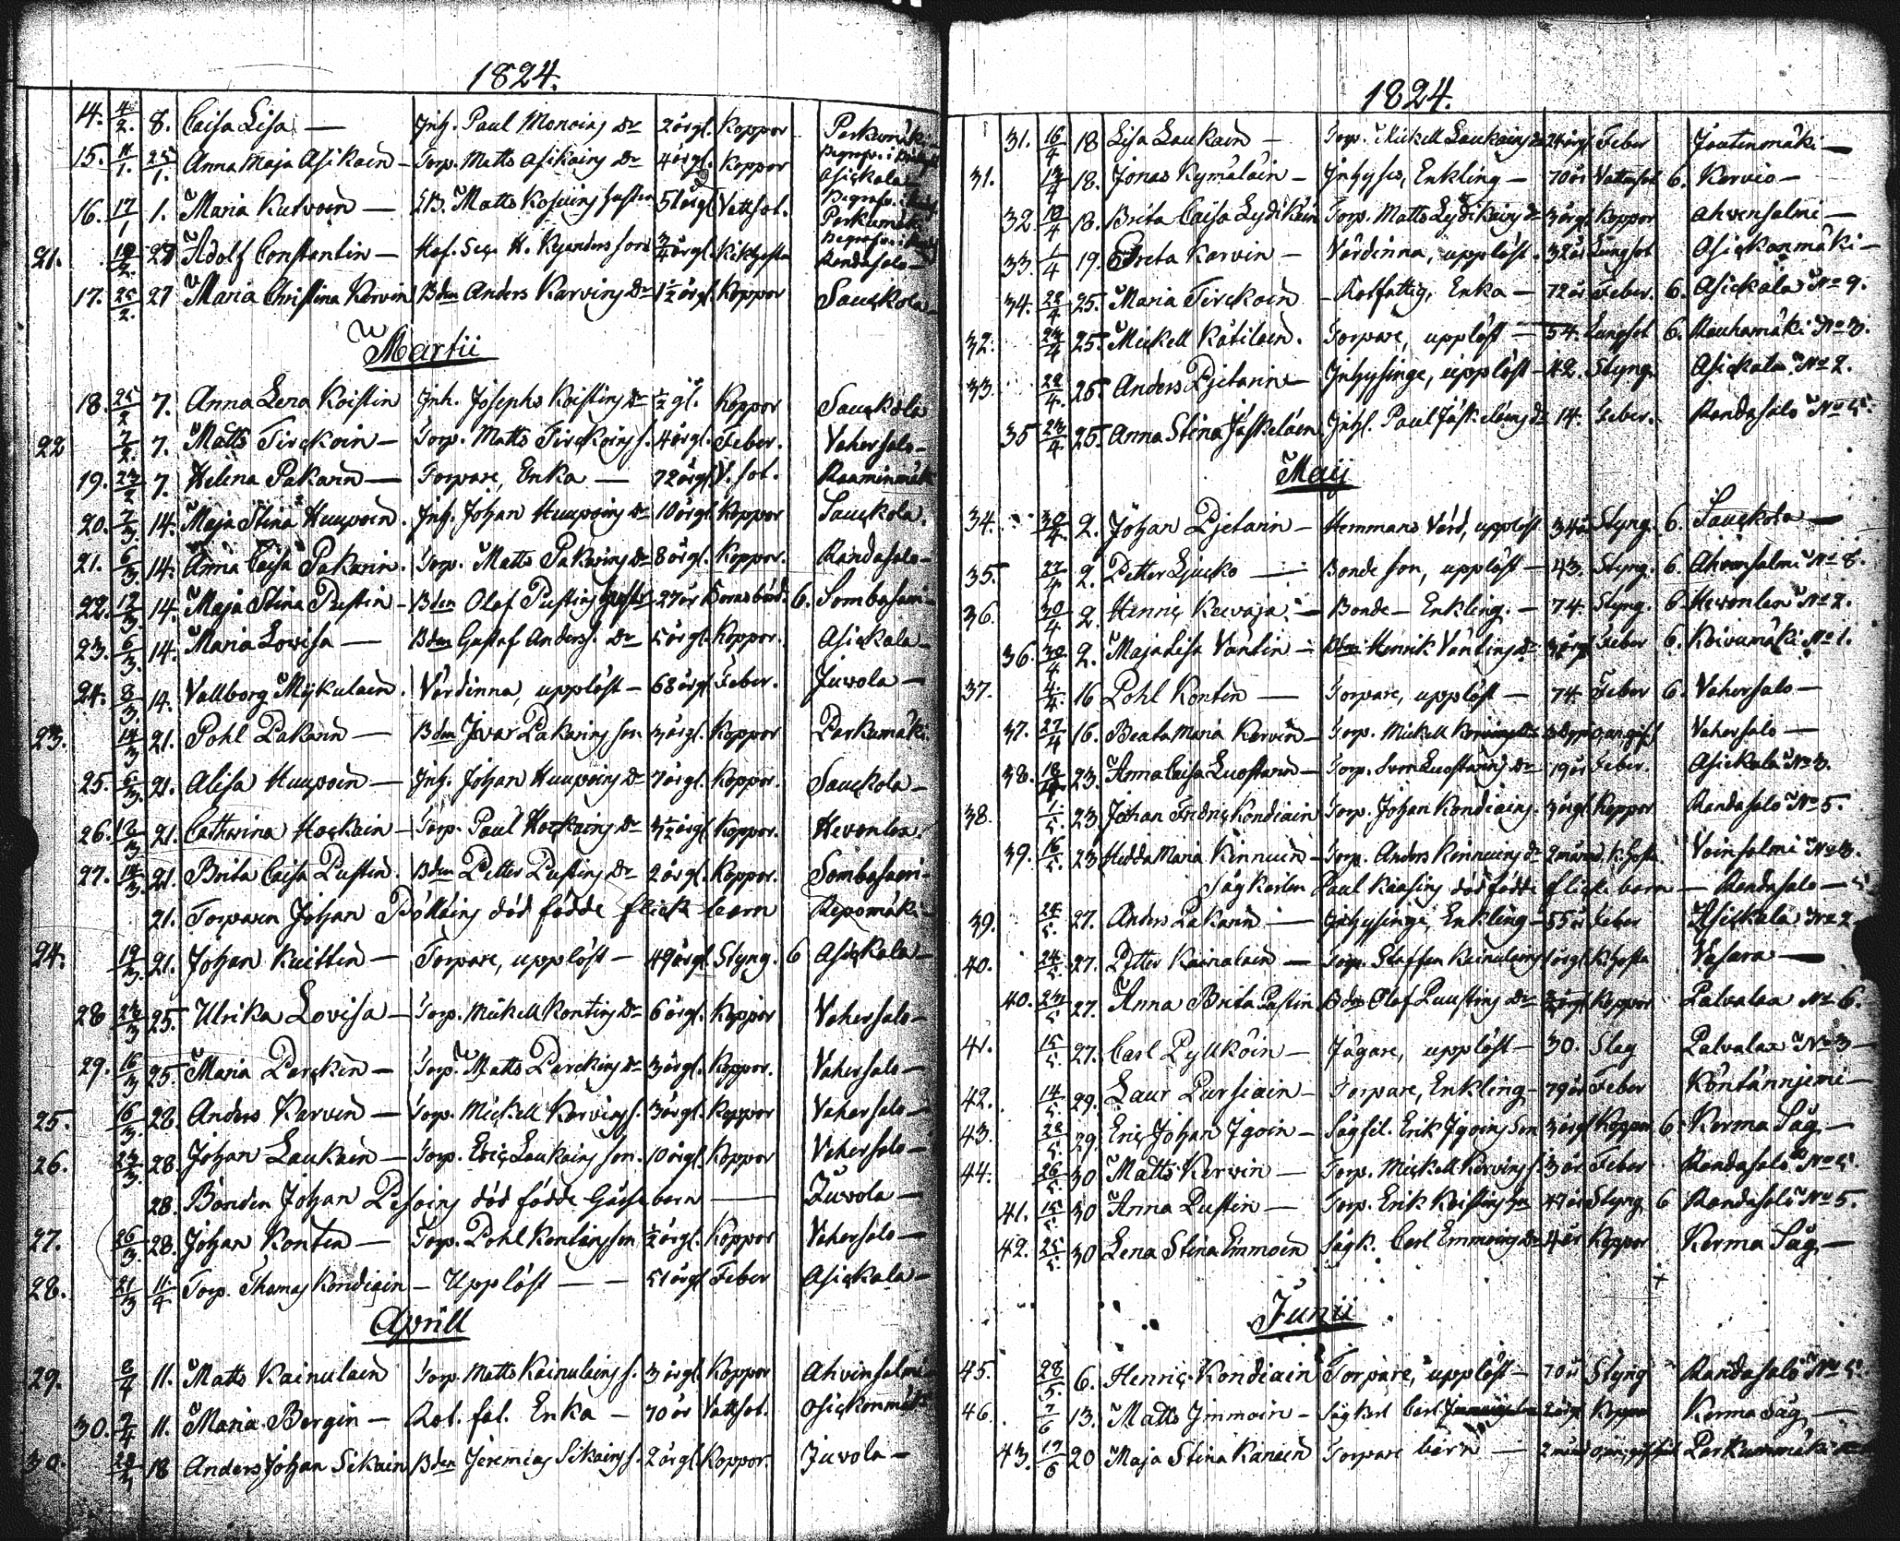 1824.
14. 4/2. 8. Caisa Lisa — Inh. Paul Monoins Dr 2 årgl. Koppor Perkumäki
15. 11/1. 25/1. Anna Maja Asikain — Torp. Matts Asikains Dr 4 årgl. Koppor Asickala
16. 17/1 1. Maria Kutvoin — Matts 51 årgl Vattsot. Perkumäki
21. 27 Adolf Constantin — H. Kyanders son årgl. Kikhosta Randasalo —
17. 25/2. 27 Maria Christina Kervin Bden Anders Karvins Dr 1 1/2 årgl. Koppor Sauckola —
Martii
18. 25/2 7. Anna Lena Koistin Inh. Josephs Koistins Dr 1/2 gl. Koppor Sauckola
22 7. Matts Tirckoin — Torp. Matts Tirckoins s. 4 årgl. Feber. Vehersalo —
19. 23/2 7. Helena Pakarin — Torpare, Enka — 72 årgl V. sot. Raaminmäki
20. 7/3 14. Maja Stina Huupoin. Inh. Johan Huupoins Dr 10 årgl. Koppor Sauckola.
21. 6/3 14. Anna Caisa Pakarin. Torp. Matts Pakarins Dr 8 årgl. Koppor. Randasalo —
22. 12/3. 14. Maja Stina Pustin — Bden Olof Pustins hustr 27 år Barnsbörd. 6. Sombasaari —
23. 6/3 14. Maria Lovisa — Bden Gustaf Anders. Dr 5 årgl. Koppor. Asickala —
24. 8/3. 14. Vallborg Mykulain. Värdinna, upplöst — 68 årgl. Feber. Juvola —
23. 14/3 21. Pohl Pakarin — Bden Ivar Pakarins son 3 årgl. Koppor Perkumäki
25. 5/3. 21. Alisa Huupoin — Inh. Johan Huupoins Dr 7 årgl. Koppor. Sauckola —
26. 12/3 21. Cathrina Hockain — Torp. Paul Hockains Dr 3 1/2 årgl. Koppor. Hevonlax.
27. 14/3. 21. Brita Caisa Pustin. Bden Petter Pustins Dr 2 årgl. Koppor. Sombasaari —
21. Torparen Johan Pöllöins död födde flick barn Repomäki —
24. 19/3. 21. Johan Kuittin — Torpare, upplöst — 49 årgl. Styng. 6 Asickala —
28 25. Ulrika Lovisa — Torp. Mickell Kontins Dr 6 årgl. Koppor Vehersalo —
29. 16/3 25. Maria Parckin — Torp. Matts Parckins Dr 3 årgl. Koppor. Vehersalo —
25. 16/3. 28. Anders Karvin — Torp. Mickell Korvins s. 3 årgl. Koppor Vehersalo —
26. 23/3. 28. Johan Laukain — Torp. Eric Laukains son. 10 årgl. Koppor Vehersalo —
28. Bonden Johan Pesoins död födde Gosse barn — Juvola —
27. 26/3. 28. Johan Kontin — Torp. Pohl Kontins son 1/2 årgl. Koppor Vehersalo —
28. 21/3 11/4 Torp. Thomas Kondiain — Upplöst — — 51 årgl Feber Asickala —
Aprill
29. 8/4 11. Matts Kainulain Torp. Matts Kainulains s. 3 årgl Koppor Ahvinsalmi
30. 7/4 11. Maria Bergin — Rot. fat. Enka — 70 år Vattsot. Asickonmäki
30. 28/3 18 Anders Johan Sikain Bden Jeremias Sikains s. 2 årgl. Koppor. Juvola —
1824.
31. 16/4 18 Lisa Laukain — Torp. Mickell Laukains Dr 2 årgl Feber Joutenmäki —
31. 13/4 18. Jonas Kymäläin — Inhyses, Enkling — 70 år Vattusot 6. Kervio —
32. 10/4 18. Brita Caisa Lydikäin Torp. Matts Lydikains Dr 3 årgl Koppor Ahvensalmi —
33. 1/4 19. Greta Karvin — Värdinna, upplöst. 32 år Lungsot Asickonmäki —
34. 22/4 25. Maria Tirckoin — Rotfattig, Enka — 72 år Feber. 6. Asickala No 9.
32. 23/4 25. Mickell Kötiloin. Torpare, upplöst — 54. Lungsot 6. Rauhamäki No 3.
33. 22/4. 25. Anders Pjetarin — Inhysinge, upplöst — 42. Styng. Asickala No 2.
35 23/4. 25. Anna Stina Jäskeläin Inhs. Paul Jäskeläins Dr 14. Feber. Randasalo No 5.
Maij
34. 30/4 2. Johan Pjetarin — Hemmans Värd, upplöst 34 år Styng. 6. Sauckola —
35. 27/4 2. Petter Ljucko — Bonde son, upplöst — 43. Styng. 6 Ahvensalmi No 8.
36. 30/4 2. Henric Kuvaja — Bonde — Enkling. — 74. Styng. 6 Hevonlax No 2.
36. 30/4 2. Maja Lisa Väntin — Bden Henrik Väntins Dr 3 årgl Feber 6. Koivumäki No 1.
37. 4/4. 16 Pohl Kontin — Torpare, upplöst — 74. Feber 6. Vehersalo —
37. 27/4 16. Beata Maria Kervin — Torp. Mickell Vehersalo —
38. 18/4 23. Anna Caisa Luostarin — Torp. Sven Luostarins Dr 19 år Feber. Asickala No 3.
38. 1/5. 23 Johan Fredric Kondiain Torp. Johan Kondiains. 3 årgl Koppor Randasalo No 5.
39. 16/5. 23 Hedda Maria Kinnuin — Torp. Anders Kinnuins Dr 2 mån k. hosta Voinsalmi No 3.
Sågkarlen Paul Kiasins död födde flick barn — Randasalo — 5
39. 24/5. 27. Anders Pakarin — Inhysinge, Enkling — 55 år Feber Asickala No 2
40. 24/5. 27. Petter Kainulain — Torp. Staffan Kainulains årgl k. hosta Vasara —
40. 23/5 27. Anna Brita Pustin Bden Olof Puustins Dr årgl Koppor Palvalax No 6.
41. 15/5. 27. Carl Pylkköin — Jägare, upplöst — 30. Slag Palvalax No 3 —
42. 14/5. 29. Laur Pursiain — Torpare, Enkling — 79 år Feber Köntännjemi —
43. 28/5. 29. Eric Johan Igoin — Sågfil. Erik Igoins son 3 årgl Koppor 6 Kerma Såg —
44. 26/5. 30 Matts Kervin — Torp. Mickell Kervins s. 3 år Feber Randasalo No 5.
41. 15/5. 30 Anna Pustin — Torp. Erik Koistins 47 år Styng 6 Randasalo No 5.
42. 25/5. 30 Lena Stina Emmoin Sågk. Carl Emmoins Dr 4 år Koppor Kerma Såg —
Junii
45. 28/5. 6. Henric Kondiain Torpare, upplöst — 70 år Styng Randasalo No 5.
46. 7/6 13. Matts Immoin — Sågkarl Carl Koppor Kerma Såg —
43. 17/6 20 Maja Stina Kanain Torpare barn — 2 månd Perkummäki